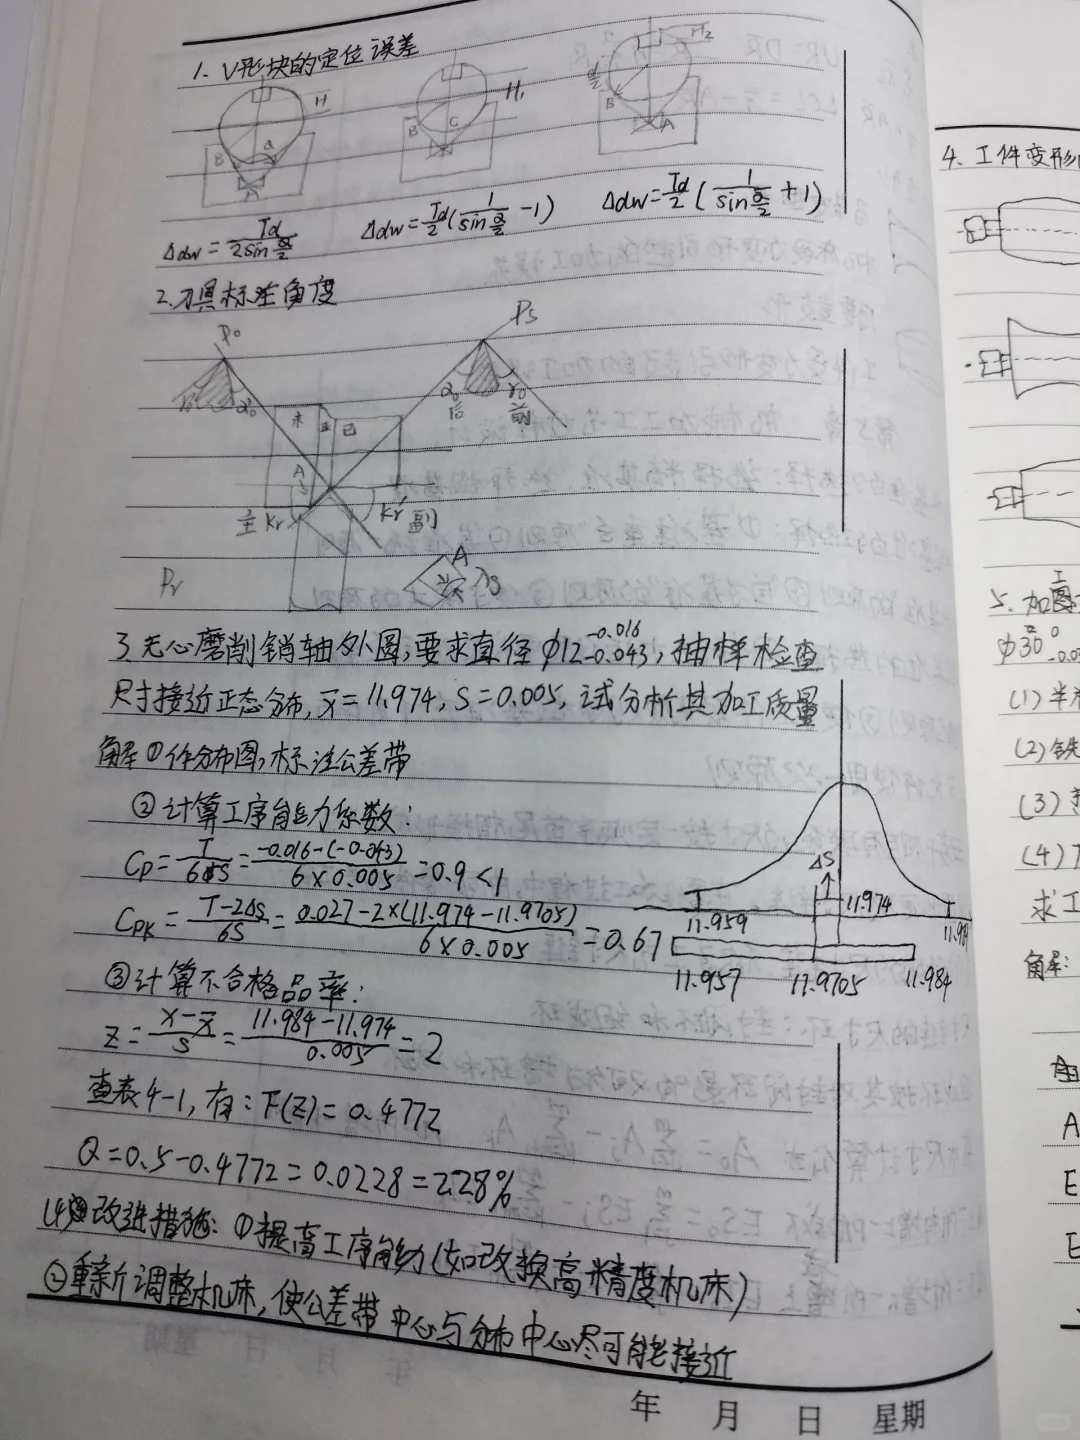 1. V形块的定位误差
H
B
α
A
H₁
B
C
H₂
B
A
Δdw=Td/(2sin α/2)
Δdw=Td/2(1/(sin α/2)-1)
Δdw=Td/2(1/(sin α/2)+1)
2.刀具标注角度
Po
Ps
αo
αo
后
γo
前
未
正
已
A
主 Kr
Kr' 副
Pr
A
λs
3.无心磨削销轴外圆,要求直径φ12 -0.016 -0.043,抽样检查
尺寸接近正态分布,x̄=11.974,S=0.005,试分析其加工质量
解①作分布图,标注公差带
②计算工序能力系数:
Cp=T/6S=(-0.016-(-0.043))/(6×0.005)=0.9<1
CPK=(T-2ΔS)/6S=(0.027-2×(11.974-11.9705))/(6×0.005)=0.67
ΔS
11.974
11.959
11.989
11.957
11.9705
11.984
③计算不合格品率:
Z=(x-x̄)/S=(11.984-11.974)/0.005=2
查表4-1,有:F(Z)=0.4772
Q=0.5-0.4772=0.0228=2.28%
(4)改进措施:①提高工序能力(如改换高精度机床)
②重新调整机床,使公差带中心与分布中心尽可能接近
年 月 日 星期
4.工件变形
5.加工
φ30 0
(1)半
(2)铣
(3)
(4)
求工
解:
A
E
E